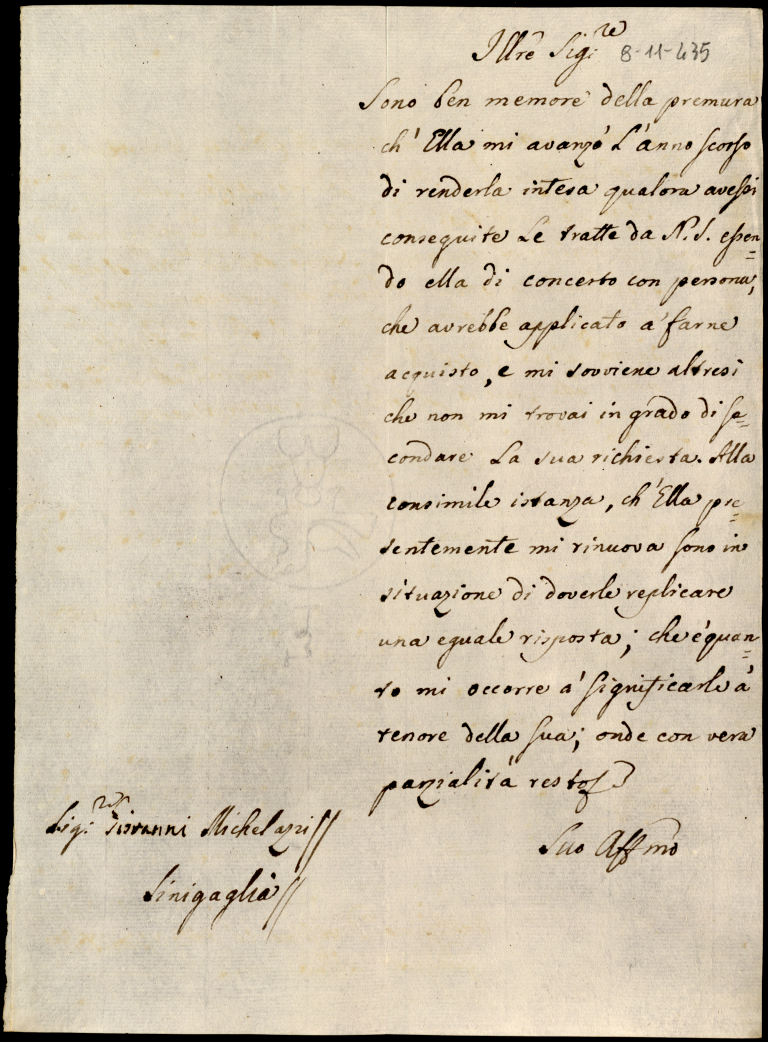 Illre Sig:re 8-11-435
Sono ben memore della premura
ch' Ella mi avanzò l'anno scorso
di renderla intesa qualora avessi
conseguite le tratte da N.S. essen=
do ella di concerto con persona,
che avrebbe applicato a' farne
acquisto, e mi sovviene altresi
che non mi trovai in grado di se=
condare la sua richiesta. Alla
consimile istanza, ch' Ella pre=
sentemente mi rinuova sono in
situazione di doverle replicare
una eguale risposta; che è quan=
to mi occorre a' significarle a'
tenore della sua; onde con vera
parzialità resto
Suo Affmo
Sig:r Giovanni Michelazzi//
Sinigaglia//